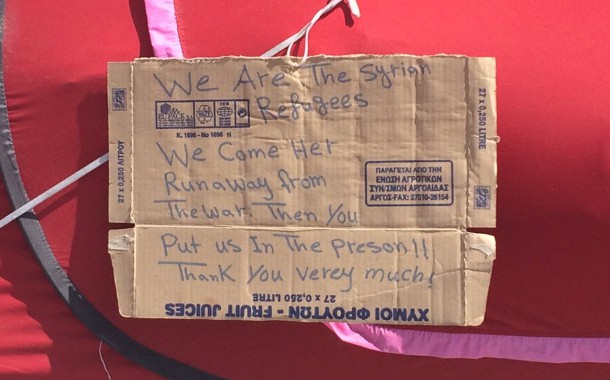 We Are The Syrian
Refugees
K. 1698 - No 1698 N
We Come Her
Runaway from
The war. Then You
Put us In The Preson!!
Thank You verey much!
27 x 0,250 ΛΙΤΡΟΥ
27 x 0,250 LITRE
ΠΑΡΑΓΕΤΑΙ ΑΠΟ ΤΗΝ
ΕΝΩΣΗ ΑΓΡΟΤΙΚΩΝ
ΣΥΝ/ΣΜΩΝ ΑΡΓΟΛΙΔΑΣ
ΑΡΓΟΣ-FAX: 27510-26154
27 x 0,250 LITRE
ΧΥΜΟΙ ΦΡΟΥΤΩΝ - FRUIT JUICES